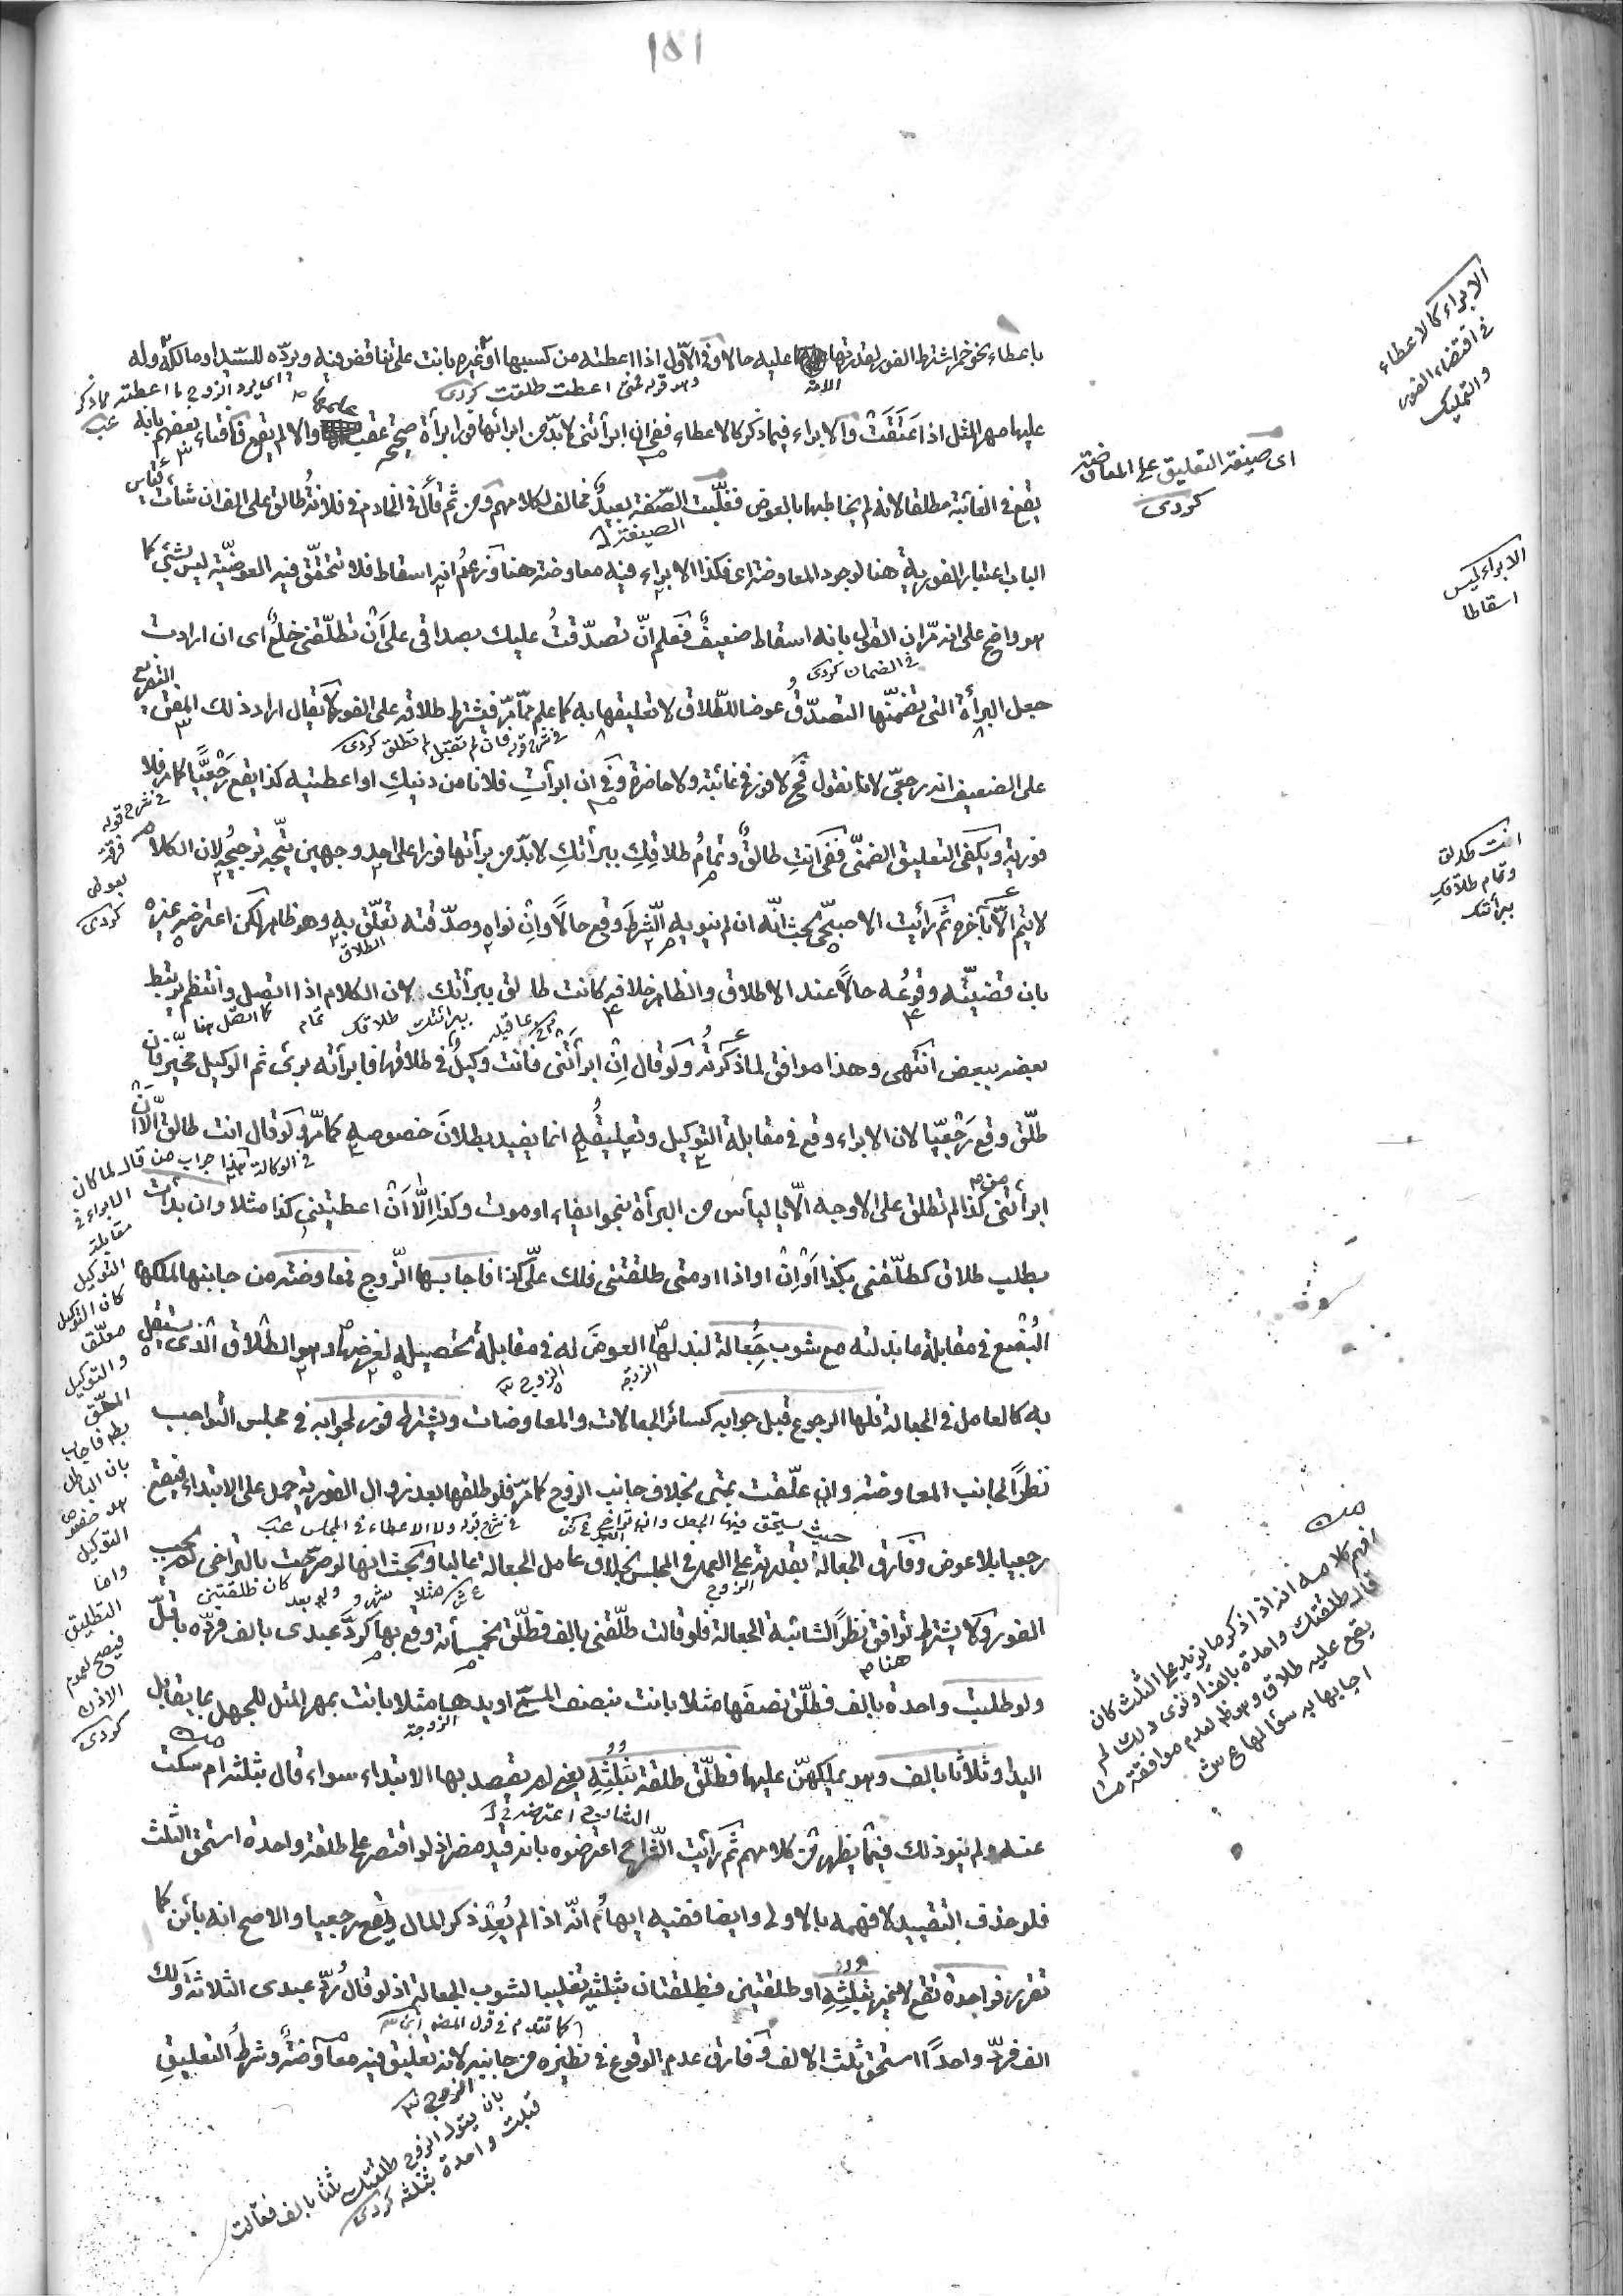 ١٥١
باعطاء نحو خمر اشترط الفور لقدرتها عليه حالا وفي الاول اذا اعطته من كسبها او غيره بانت على تناقض فيه ويرده للسيد او مالكه وله
عليها مهر المثل اذا عتقت والابراء فيما ذكر كالاعطاء ففي ان ابرأتني لا بد من ابرائها فورا براءة صحيحة عقب والا لم يقع فافتاء بعضهم بانه
يقع في الغائبة مطلقا لانه لم يخاطبها بالعوض فغلبت الصفة بعيد مخالف لكلامهم ومن ثم قال في الخادم في فلانة طالق على الف ان شاءت قياس
الباب اعتبار الفورية هنا لوجود المعاوضة اي فكذا الابراء فيه معاوضة هنا وزعم انه اسقاط فلا تتحقق فيه العوضية ليس بشئ كما
هو واضح على انه مر ان القول بانه اسقاط ضعيف فعلم ان تصدقت عليك بصداقي على ان تطلقني خلع اي ان ارادت
جعل البرأة التي تضمنها التصدق عوضا للطلاق لا تعليقها به كما علم مما مر فيشترط طلاقه على الفور لا يقال اراد ذلك المفتي التفريع
على الضعيف انه رجعي لانا نقول فح لا فور في غائبة ولا حاضرة وفي ان ابرأت فلانا من دينك او اعطيتيه كذا يقع رجعيا كما مر فلا
فورية ويكفي التعليق الضمني ففي انت طالق وتمام طلاقك ببرأتك لا بد من برأتها فورا على احد وجهين يتجه ترجيحه لان الكلام
لا يتم الا بآخره ثم رأيت الاصبحي بحث انه ان لم ينو به الشرط وقع حالا وان نواه وصدقته تعلق به وهو ظاهر لكن اعترضه غيره
بان قضيته وقوعه حالا عند الاطلاق والظاهر خلافه كانت طالق ببرأتك لان الكلام اذا اتصل وانتظم يرتبط
بعضه ببعض انتهى وهذا موافق لما ذكرته ولو قال ان ابرأتني فانت وكيل في طلاقها فابرأته برئ ثم الوكيل مخير فان
طلق وقع رجعيا لان الابراء وقع في مقابلة التوكيل وتعليقه انما يفيد بطلان خصوصه كما مر ولو قال انت طالق الا ان
ابرأتني من كذا لم تطلق على الاوجه الا باليأس من البرأة بنحو ايفاء او موت وكذا الا ان اعطيتني كذا مثلا وان بدأت
بطلب طلاق كطلقني بكذا او ان او اذا او متى طلقتني فلك علي كذا فاجابها الزوج فمعاوضة من جانبها لملكها
البضع في مقابلة ما بذلته مع شوب جعالة لبذلها العوض له في مقابلة تحصيله لغرضها وهو الطلاق الذي يستقل
به كالعامل في الجعالة فلها الرجوع قبل جوابه كسائر الجعالات والمعاوضات ويشترط فور لجوابه في مجلس التواجب
نظرا لجانب المعاوضة وان علقت بمتى بخلاف جانب الزوج كما مر فلو طلقها بعد زوال الفورية حمل على الابتداء فيقع
رجعيا بلا عوض وفارق الجعالة بقدرته على العمل في المجلس بخلاف عامل الجعالة غالبا وبحث انها لو صرحت بالتراخي لم يجب
الفور ولا يشترط توافق نظرا لشائبة الجعالة فلو قالت طلقني بالف فطلق بخمسمأئة وقع بها كرد عبدي بالف فرده باقل
ولو طلبت واحدة بالف فطلق نصفها مثلا بانت بنصف المسمى او يدها مثلا بانت بمهر المثل للجهل بما يقابل
اليد او ثلاثا بالف وهو يملكهن عليها فطلق طلقة بثلثه يعني لم يقصد بها الابتداء سواء قال بثلثه ام سكت
عنه ولم ينو ذلك فيما يظهر من كلامهم ثم رأيت الشراح اعترضوه بانه قيد مضر اذ لو اقتصر على طلقة واحدة استحق الثلث
فلو حذف التقييد لافهمه بالاولى وايضا فقضيه ايهام انه اذا لم يعد ذكر المال يقع رجعيا والاصح انه بائن كما
تقرر فواحدة تقع لا غير بثلثه او طلقتين فطلقتان بثلثيه تغليبا لشوب الجعالة اذ لو قال رد عبدي الثلاثة ولك
الف فرد واحدا استحق ثلث الالف وفارق عدم الوقوع في نظيره من جانبه لانه تعليق فيه معاوضة وشرط التعليق
الابراء كالاعطاء
في اقتضاء الفور
والتمليك
اي صيغة التعليق على المعاوضة
كردي
الابراء ليس
اسقاطا
انت طالق
وتمام طلاقك
ببرأتك
الامة
وهو قوله متى اعطت طلقت كردي
اي يرد الزوج ما اعطته مما ذكر
الصيغة
في الضمان كردي
في شرح قوله فان لم تقبل لم تطلق كردي
في شرح قوله
كردي
الطلاق
ببرائتك طلاقك تمام كما اتصل هنا
في الوكالة
هذا جواب من قال لما كان
الابراء في
مقابلة
التوكيل
كان التوكيل
معلق
والتوكيل
المعلق
بطل فاجاب
بان الباطل
هو خصوص
التوكيل
واما
التطليق
فيصح لعموم
الاذن
كردي
الزوجة
الزوج
حيث يستحق فيها الجعل وان تراخى
في شرح قوله ولا الاعطاء في المجلس
الزوج
هنا
الزوجة
منه
افهم كلامه انه اذا ذكر ما يزيد على الثلث كان
قال طلقتك واحدة بالف او نوى ذلك لم
يقع عليه طلاق وهو ظ لعدم موافقة ما
اجابها به سؤالها ع ش
كما تقدم في قول المص
الزوج
بان يقول الزوج طلقتك ثلثا بالف فقالت
قبلت واحدة بثلثه كردي